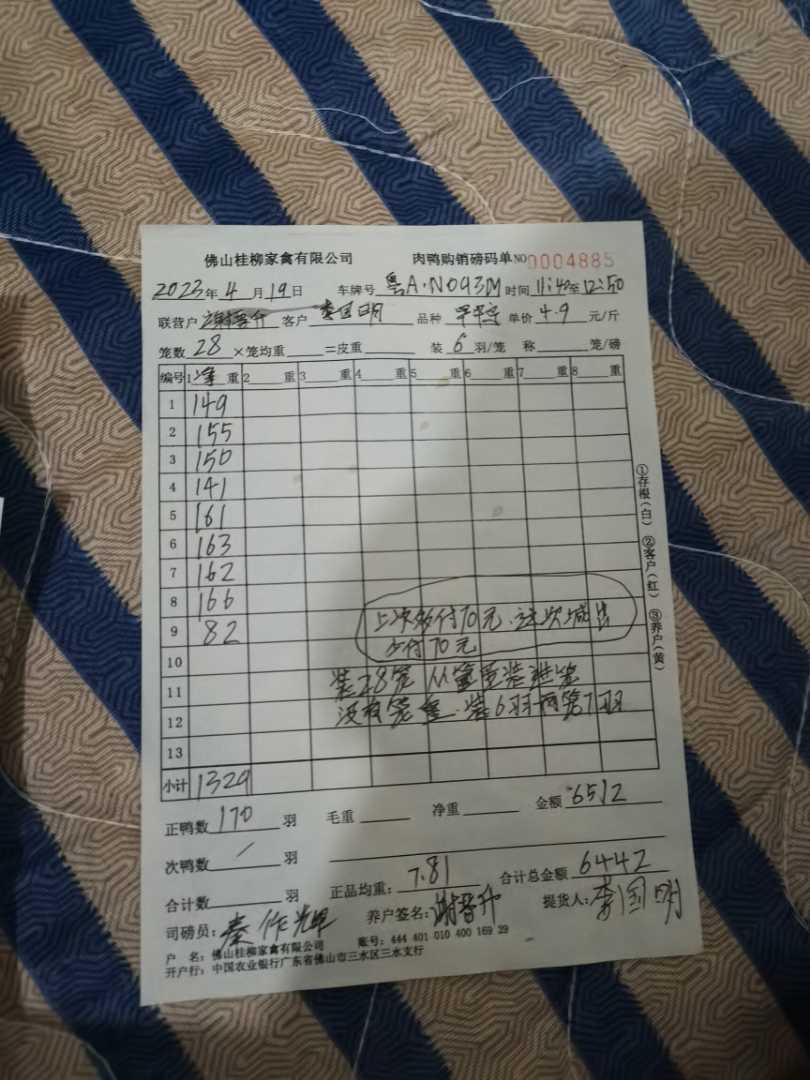 佛山桂柳家禽有限公司 肉鸭购销磅码单 NO 0004885
2023年4月19日 车牌号 粤A·N093M 时间 11:40至12:50
联营户 客户 李国明 品种 单价 4.9 元/斤
笼数 28 ×笼均重 =皮重 装 6 羽/笼 称 笼/磅
编号 1净重 2 重 3 重 4 重 5 重 6 重 7 重 8 重
1 149
2 155
3 150
4 141
5 161
6 163
7 162
8 166
9 82
10
11
12
13
上次多付70元.这次减出
少付70元
装28笼 从 装进笼
没有笼重.装6羽两笼7羽
小计 1329
①存根(白) ②客户(红) ③养户(黄)
正鸭数 170 羽 毛重 净重 金额 6512
次鸭数 / 羽
合计数 羽 正品均重: 7.81 合计总金额 6442
司磅员: 秦作辉 养户签名: 谢晋升 提货人: 李国明
户 名: 佛山桂柳家禽有限公司 账号: 444 401 010 400 169 29
开户行: 中国农业银行广东省佛山市三水区三水支行